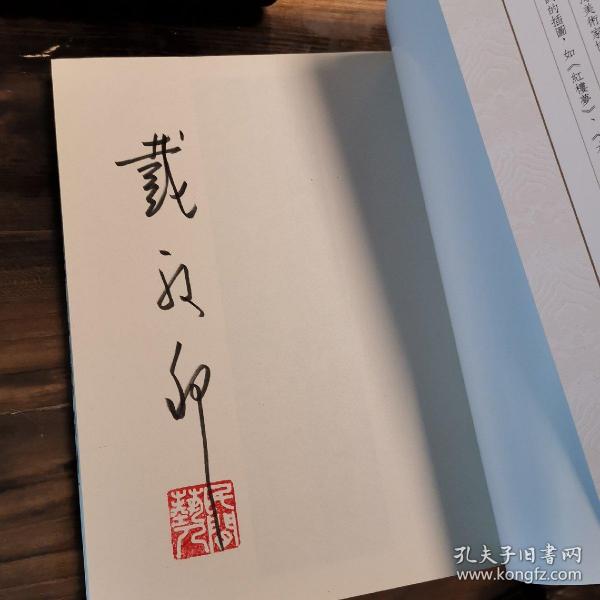 戴敦邦
民間藝人
美術家
的插圖，如《紅樓夢》、《
孔夫子旧书网
www.kongfz.com